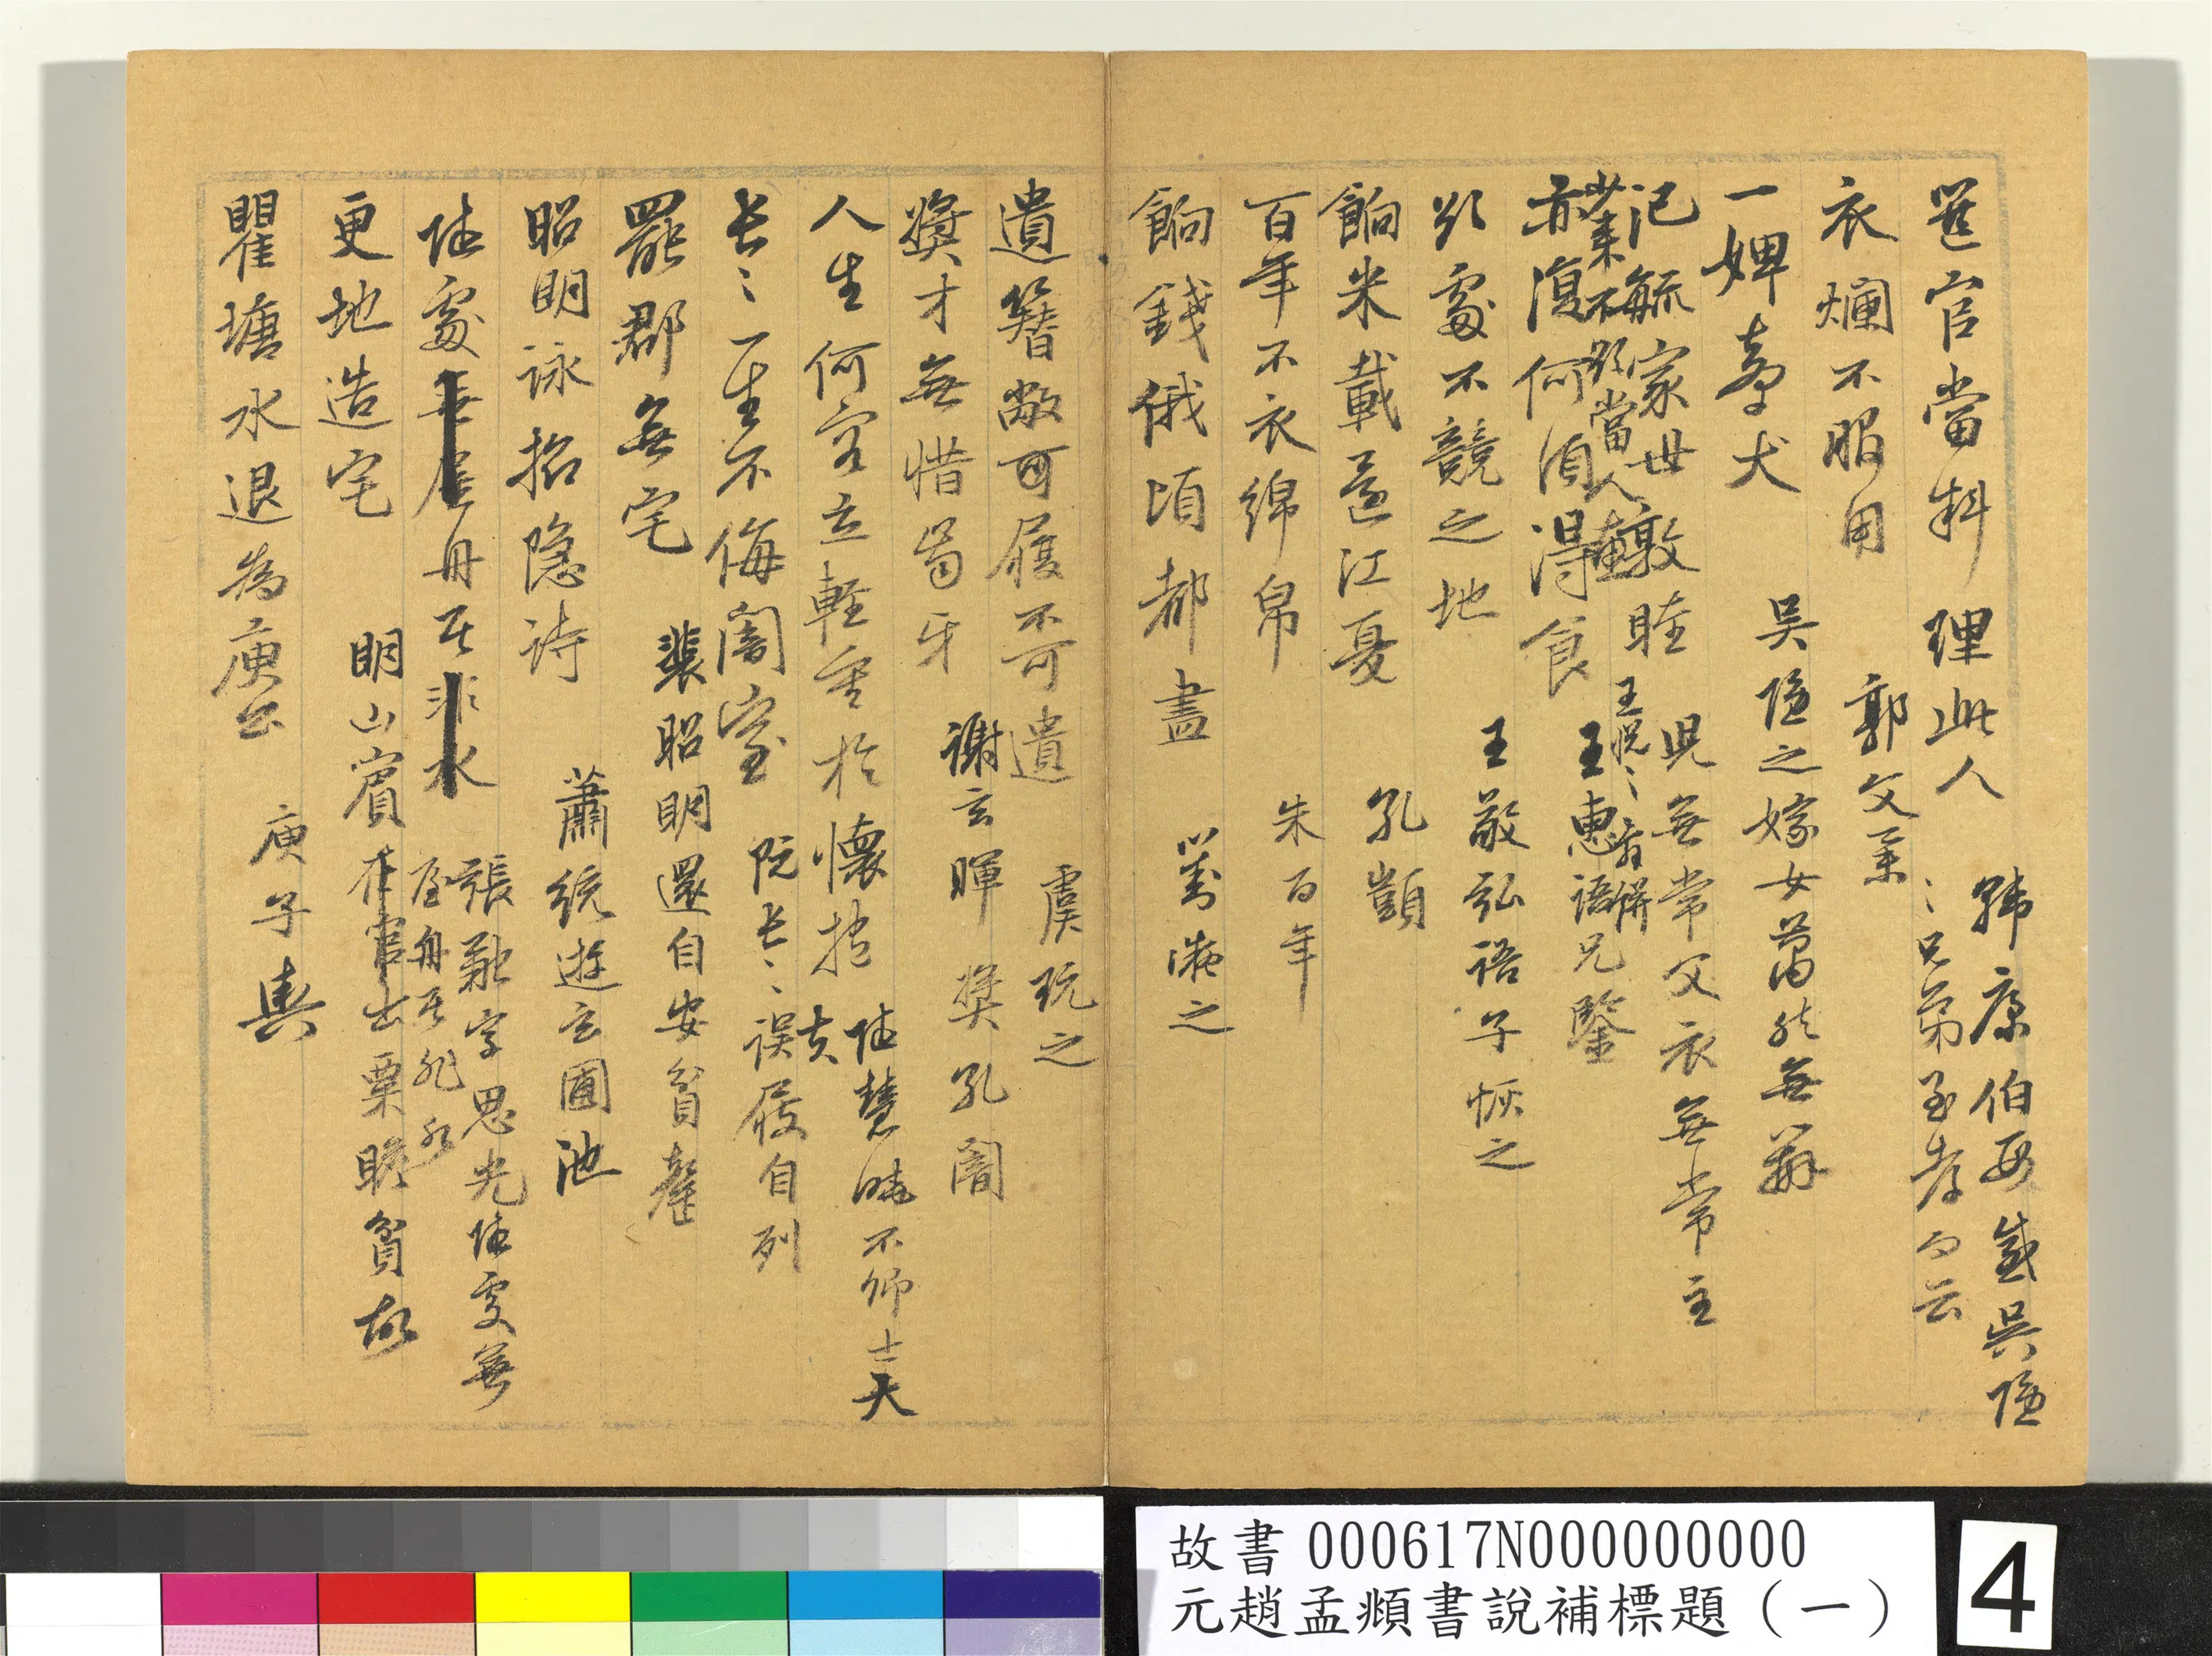 選官當料理此人 韓康伯母感吳隱
之兄弟至孝而云
衣爛不服用 郭文舉
一婢牽犬 吳隱之嫁女蕭然無辦
氾毓家世敦睦 兒無常父衣無常主
亦復何須得食 王惠語兄鑒
於處不競之地 王敬弘語子恢之
餉米載還江夏 孔顗
百年不衣綿帛 朱百年
餉錢俄頃都盡 劉凝之
遺簪敝可履不可遺 虞玩之
獎才無惜齒牙 謝玄暉獎孔闓
人生何容立輕重於懷抱 陸慧曉不卿士大
夫
長之一生不侮闇室 阮長之誤屐自列
罷郡無宅 裴昭明還自安貧賤
昭明詠招隱詩 蕭統遊玄圃池
陸處無屋舟居非水 張融字思光陸處無
屋舟居非水
更地造宅 明山賓在官出粟贍貧故
瞿塘水退為庾公 庾子輿
故書 000617N000000000
元趙孟頫書說補標題（一）
4